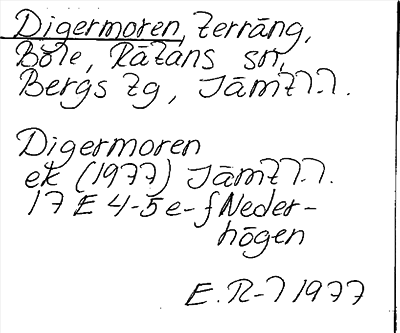 Digermoren, terräng,
Böle, Rätans sn,
Bergs tg, Jämtl.
Digermoren
ek (1977) Jämtl.
17 E 4-5 e-f Neder-
högen
E. R-l 1977